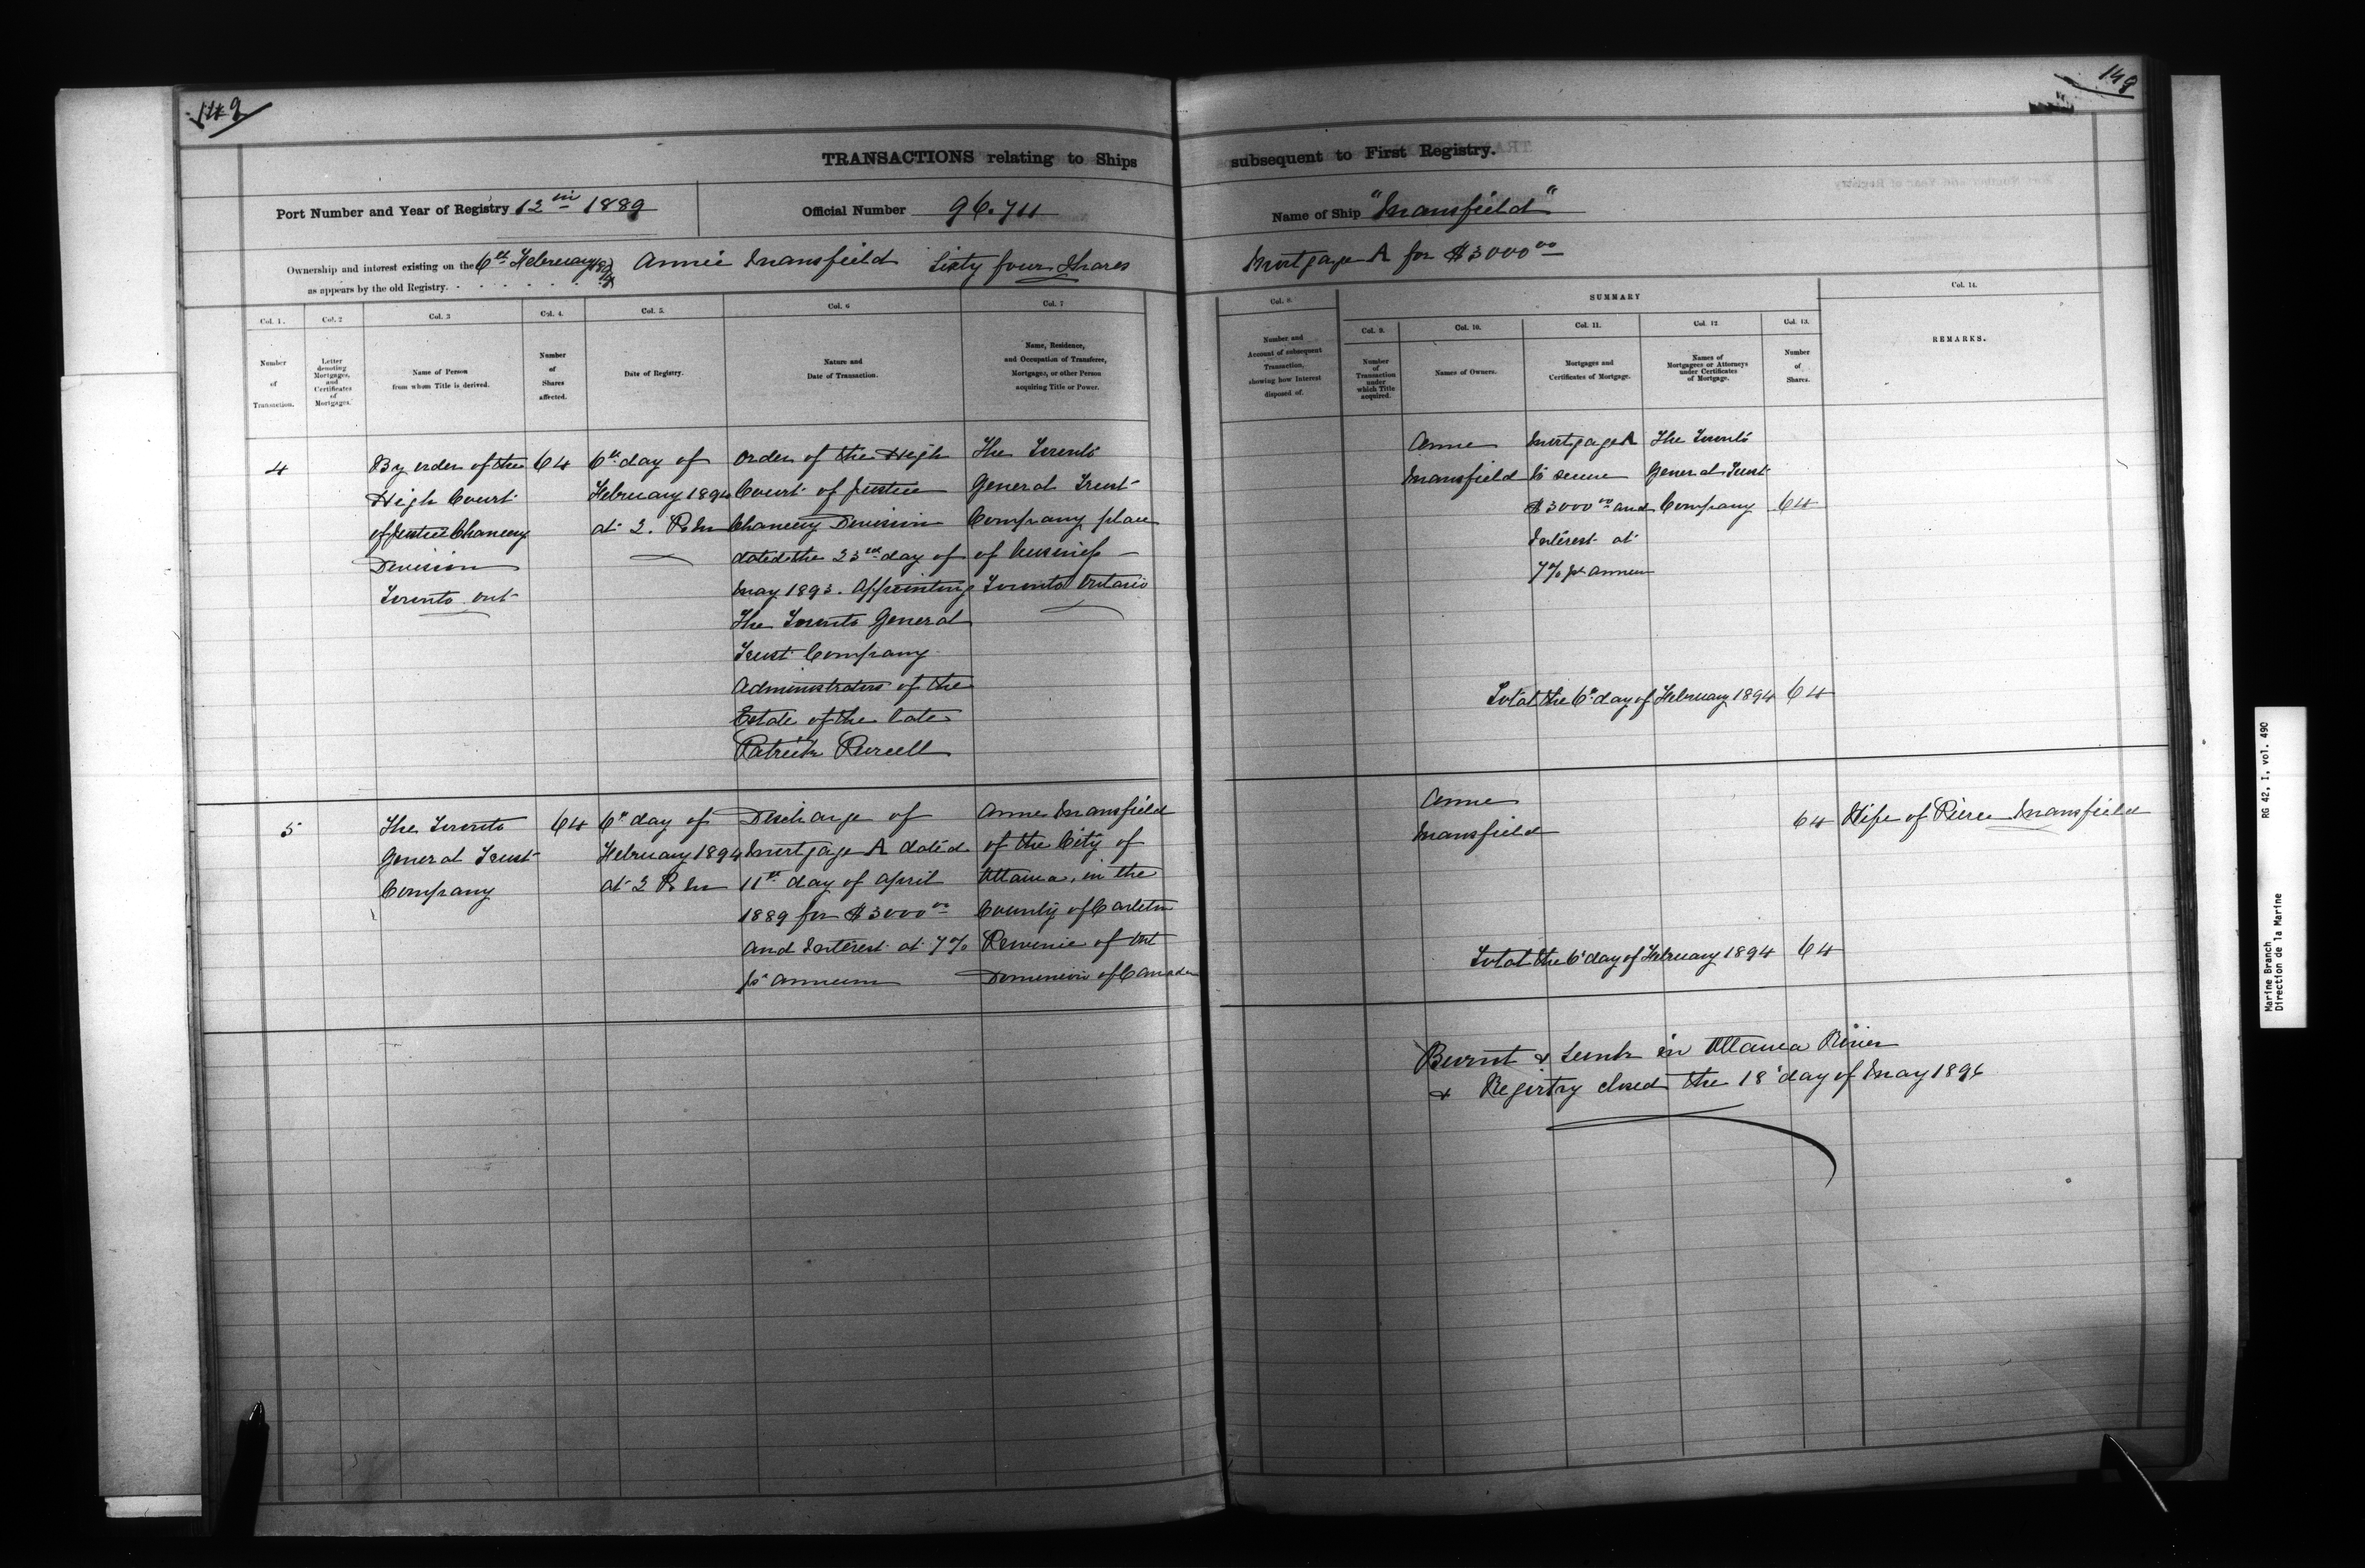 148
148
TRANSACTIONS relating to Ships subsequent to First Registry.
Port Number and Year of Registry 12 in 1889
Official Number 96.711
Name of Ship "Mansfield"
Ownership and interest existing on the 6th February 1894
as appears by the old Registry.
Annie Mansfield Sixty four Shares
Mortgage A for $3000 00
Col. 1.
Number
of
Transaction.
Col. 2
Letter
denoting
Mortgages,
and
Certificates
of
Mortgages.
Col. 3
Name of Person
from whom Title is derived.
Col. 4.
Number
of
Shares
affected.
Col. 5.
Date of Registry.
Col. 6
Nature and
Date of Transaction.
Col. 7
Name, Residence,
and Occupation of Transferee,
Mortgagee, or other Person
acquiring Title or Power.
Col. 8.
Number and
Account of subsequent
Transaction,
showing how Interest
disposed of.
SUMMARY
Col. 9.
Number
of
Transaction
under
which Title
acquired.
Col. 10.
Names of Owners.
Col. 11.
Mortgages and
Certificates of Mortgage.
Col. 12
Names of
Mortgagees or Attorneys
under Certificates
of Mortgage.
Col. 13.
Number
of
Shares.
Col. 14.
REMARKS.
4
By order of the
High Court
of Justice Chancery
Division
Toronto Ont
64
6th day of
February 1894
at 2. P.M
Order of the High
Court of Justice
Chancery Division
dated the 23rd day of
May 1893. Appointing
The Toronto General
Trust Company
Administrators of the
Estate of the late
Patrick Purcell
The Toronto
General Trust
Company place
of business
Toronto Ontario
Anne
Mansfield
Mortgage A
to secure
$3000 00 and
Interest at
7% pr annum
The Toronto
General Trust
Company
64
Total the 6th day of February 1894 64
5
The Toronto
General Trust
Company
64
6th day of
February 1894
at 2 P.M
Discharge of
Mortgage A dated
11th day of April
1889 for $3000 00
and Interest at 7%
pr annum
Anne Mansfield
of the City of
Ottawa, in the
County of Carleton
Province of Ont
Dominion of Canada
Anne
Mansfield
64
Wife of Pierce Mansfield
Total the 6th day of February 1894 64
Burnt & Sunk in Ottawa River
& Registry closed the 18th day of May 1896
RG 42, I, vol. 490
Marine Branch
Direction de la Marine